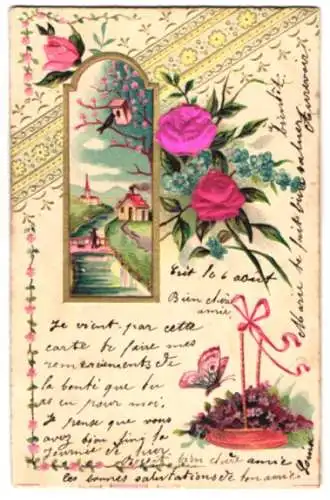 Ecrit le 6 août
Bien chère
amie
Je vient par cette
carte de faire mes
remerciements de
la bonté que tu
as eu pour moi.
Je pense que vous
avez bien
journée de hier
bien chère amie
les bonnes salutations de ton amie
Marie te fait bien saluer
bientôt